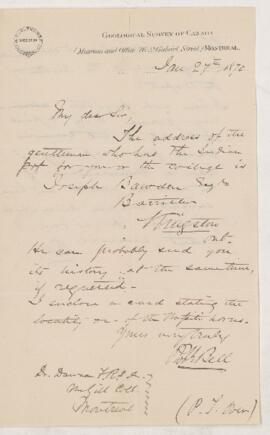 GEOLOGICAL SURVEY OF CANADA
Museum and Office 76 St Gabriel Street, MONTREAL.
Jan 27th 187
My dear Sir,
The address of the
gentleman who has the Indian
pot for you or the College is
Joseph Bawden Esq
Barrister
Kingston
Ont.
He can probably send you
its history at the same time,
if required.
I enclose a card stating the
locality of the Wapiti horns.
Yours very truly
Robt Bell
Dr. Dawson F.R.S.
McGill Coll.
Montreal
(P. T. Over)